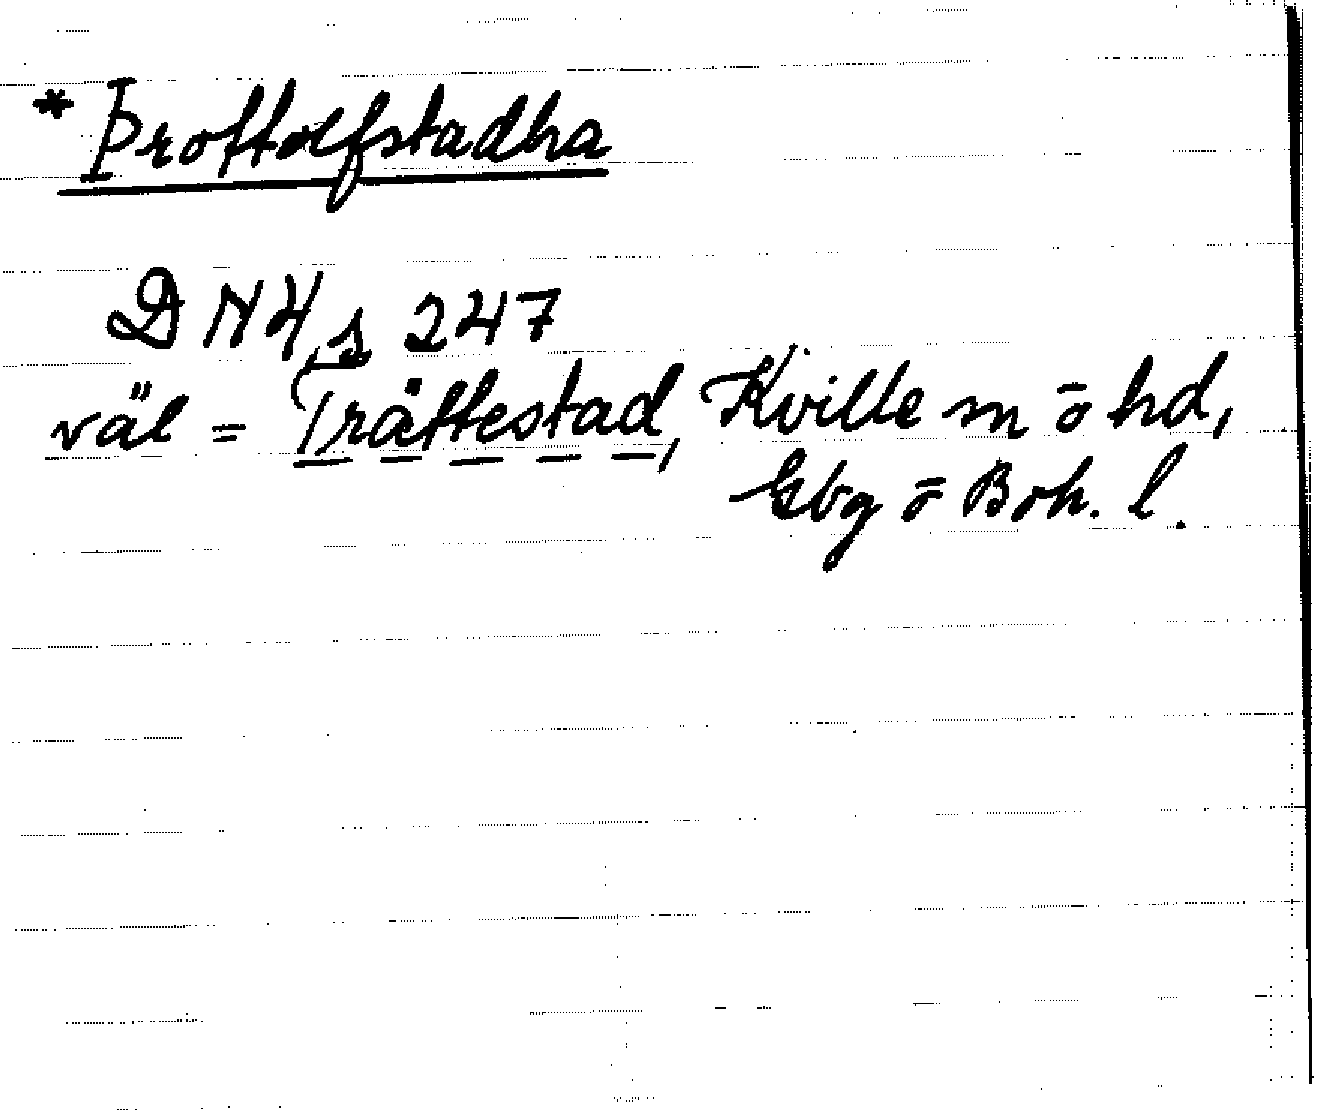 * Þrottolfstadha
DN 4, s 247
väl = Tråttestad, Kville sn ō hd,
Gbg ō Boh. l.